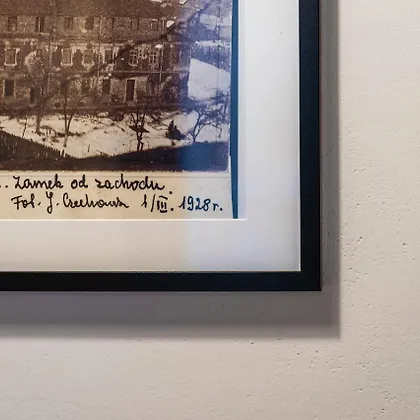 .. Zamek od zachodu.
Fot. J. Czechowicz 1/III. 1928 r.